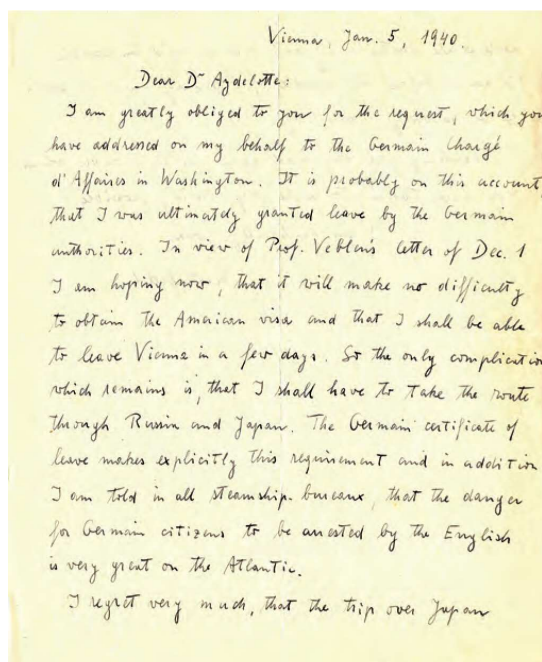 Vienna, Jan. 5, 1940.
Dear Dr Aydelotte:
I am greatly obliged to you for the request, which you
have addressed on my behalf to the German Chargé
d'Affaires in Washington. It is probably on this account,
that I was ultimately granted leave by the German
authorities. In view of Prof. Veblen's letter of Dec. 1
I am hoping now, that it will make no difficulty
to obtain the American visa and that I shall be able
to leave Vienna in a few days. So the only complication
which remains is, that I shall have to take the route
through Russia and Japan. The German certificate of
leave makes explicitly this requirement and in addition
I am told in all steamship-bureaux, that the danger
for German citizens to be arrested by the English
is very great on the Atlantic.
I regret very much, that the trip over Japan